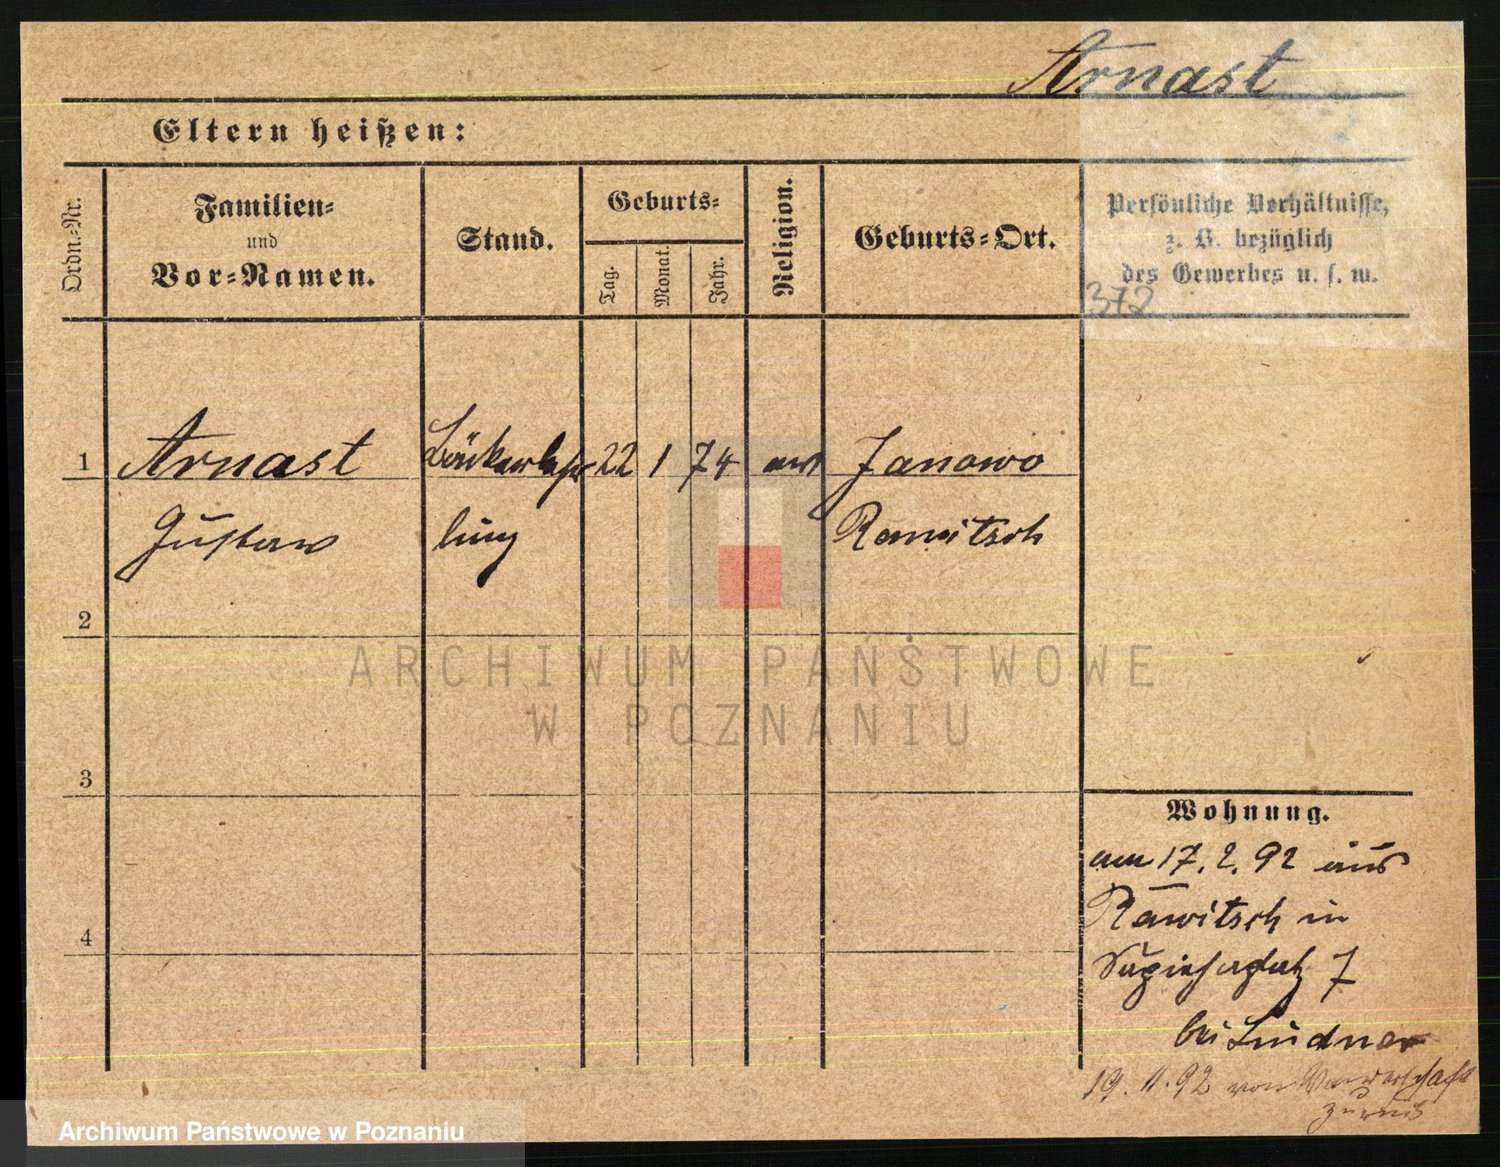 Arnast
Eltern heißen:
Ordn.-Nr.
Familien-
und
Vor-Namen.
Stand.
Geburts-
Tag.
Monat.
Jahr.
Religion.
Geburts-Ort.
Persönliche Verhältnisse,
z. B. bezüglich
des Gewerbes u. s. w.
372
1
Arnast
Gustav
Bäckerlehr
ling
22
1
74
Janowo
Rawitsch
2
3
4
ARCHIWUM PAŃSTWOWE
W POZNANIU
Wohnung.
am 17. 2. 92 aus
Rawitsch in
Sapiehaplatz 7
bei Lindner
19. 11. 92 von Wanderschaft
zurück
Archiwum Państwowe w Poznaniu